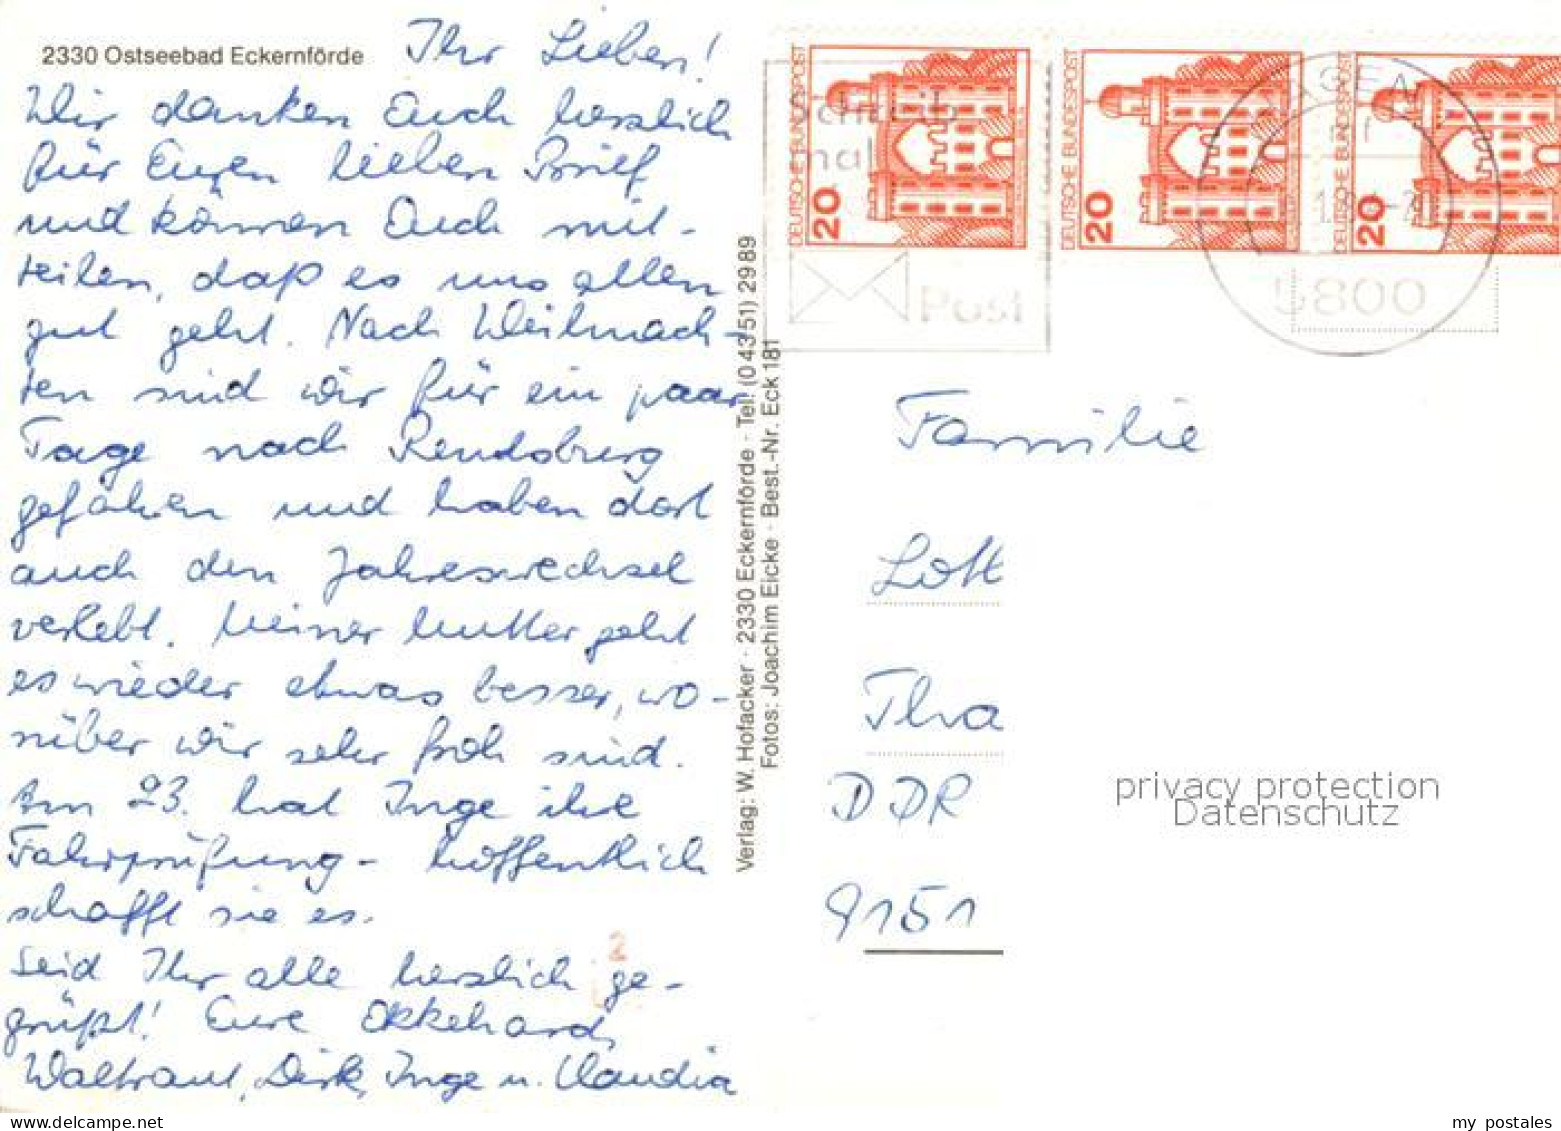 2330 Ostseebad Eckernförde
Ihr Lieben!
Wir danken Euch herzlich
für Euren lieben Brief
und können Euch mit-
teilen, daß es uns allen
gut geht. Nach Weihnach-
ten sind wir für ein paar
Tage nach Rendsburg
gefahren und haben dort
auch den Jahreswechsel
verlebt. Meiner Mutter geht
es wieder etwas besser, wo-
rüber wir sehr froh sind.
Am 23. hat Inge ihre
Fahrprüfung - hoffentlich
schafft sie es.
Seid Ihr alle herzlich ge-
grüßt! Eure Ekkehard,
Waltraut, Dirk, Inge u. Claudia
Verlag: W. Hofacker · 2330 Eckernförde · Tel. (04351) 2989
Fotos: Joachim Eicke · Best.-Nr. Eck 181
DEUTSCHE BUNDESPOST
20
DEUTSCHE BUNDESPOST
20
DEUTSCHE BUNDESPOST
20
Schreib
mal
Post
HAGEN
5800
Familie
Lott
Tha
DDR
9151
2
privacy protection
Datenschutz
my postales